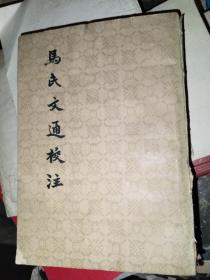 馬氏文通校注